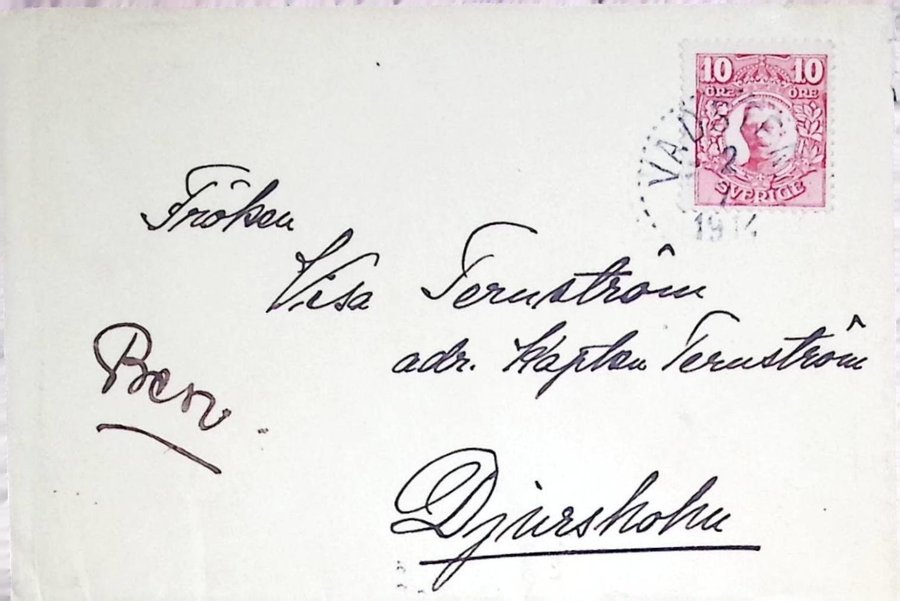 10 10
ÖRE ÖRE
SVERIGE
VADSTENA
2
1914
Fröken
Visa Ternström
adr. Kapten Ternström
Besv.
Djursholm